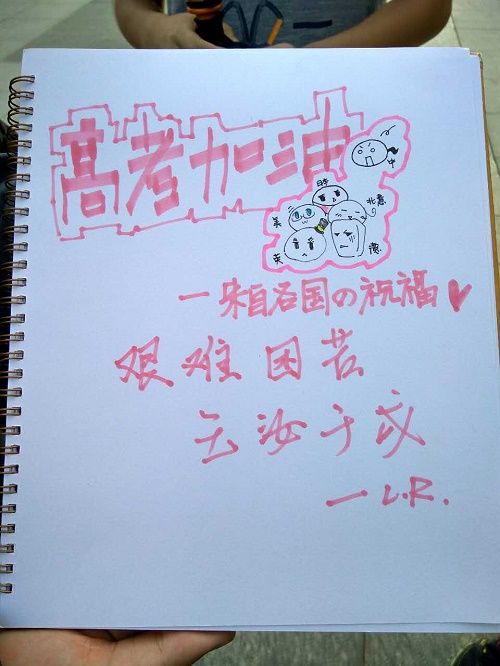 高考加油
中
日本
美
北意
英
—来自各国の祝福
艰难困苦
玉汝于成
—L.R.